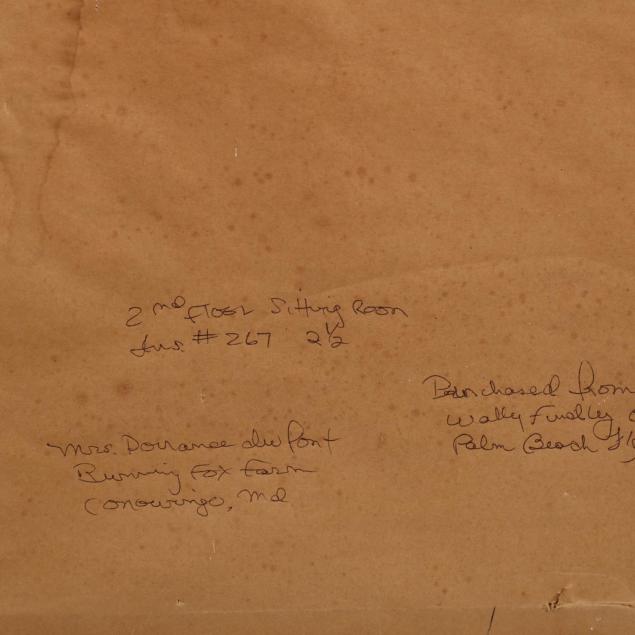 2nd Floor Sitting Room
Ins. #267 2½
Purchased from
Wally Findlay
Palm Beach
Mrs. Dorrance du Pont
Running Fox Farm
Conowingo, Md